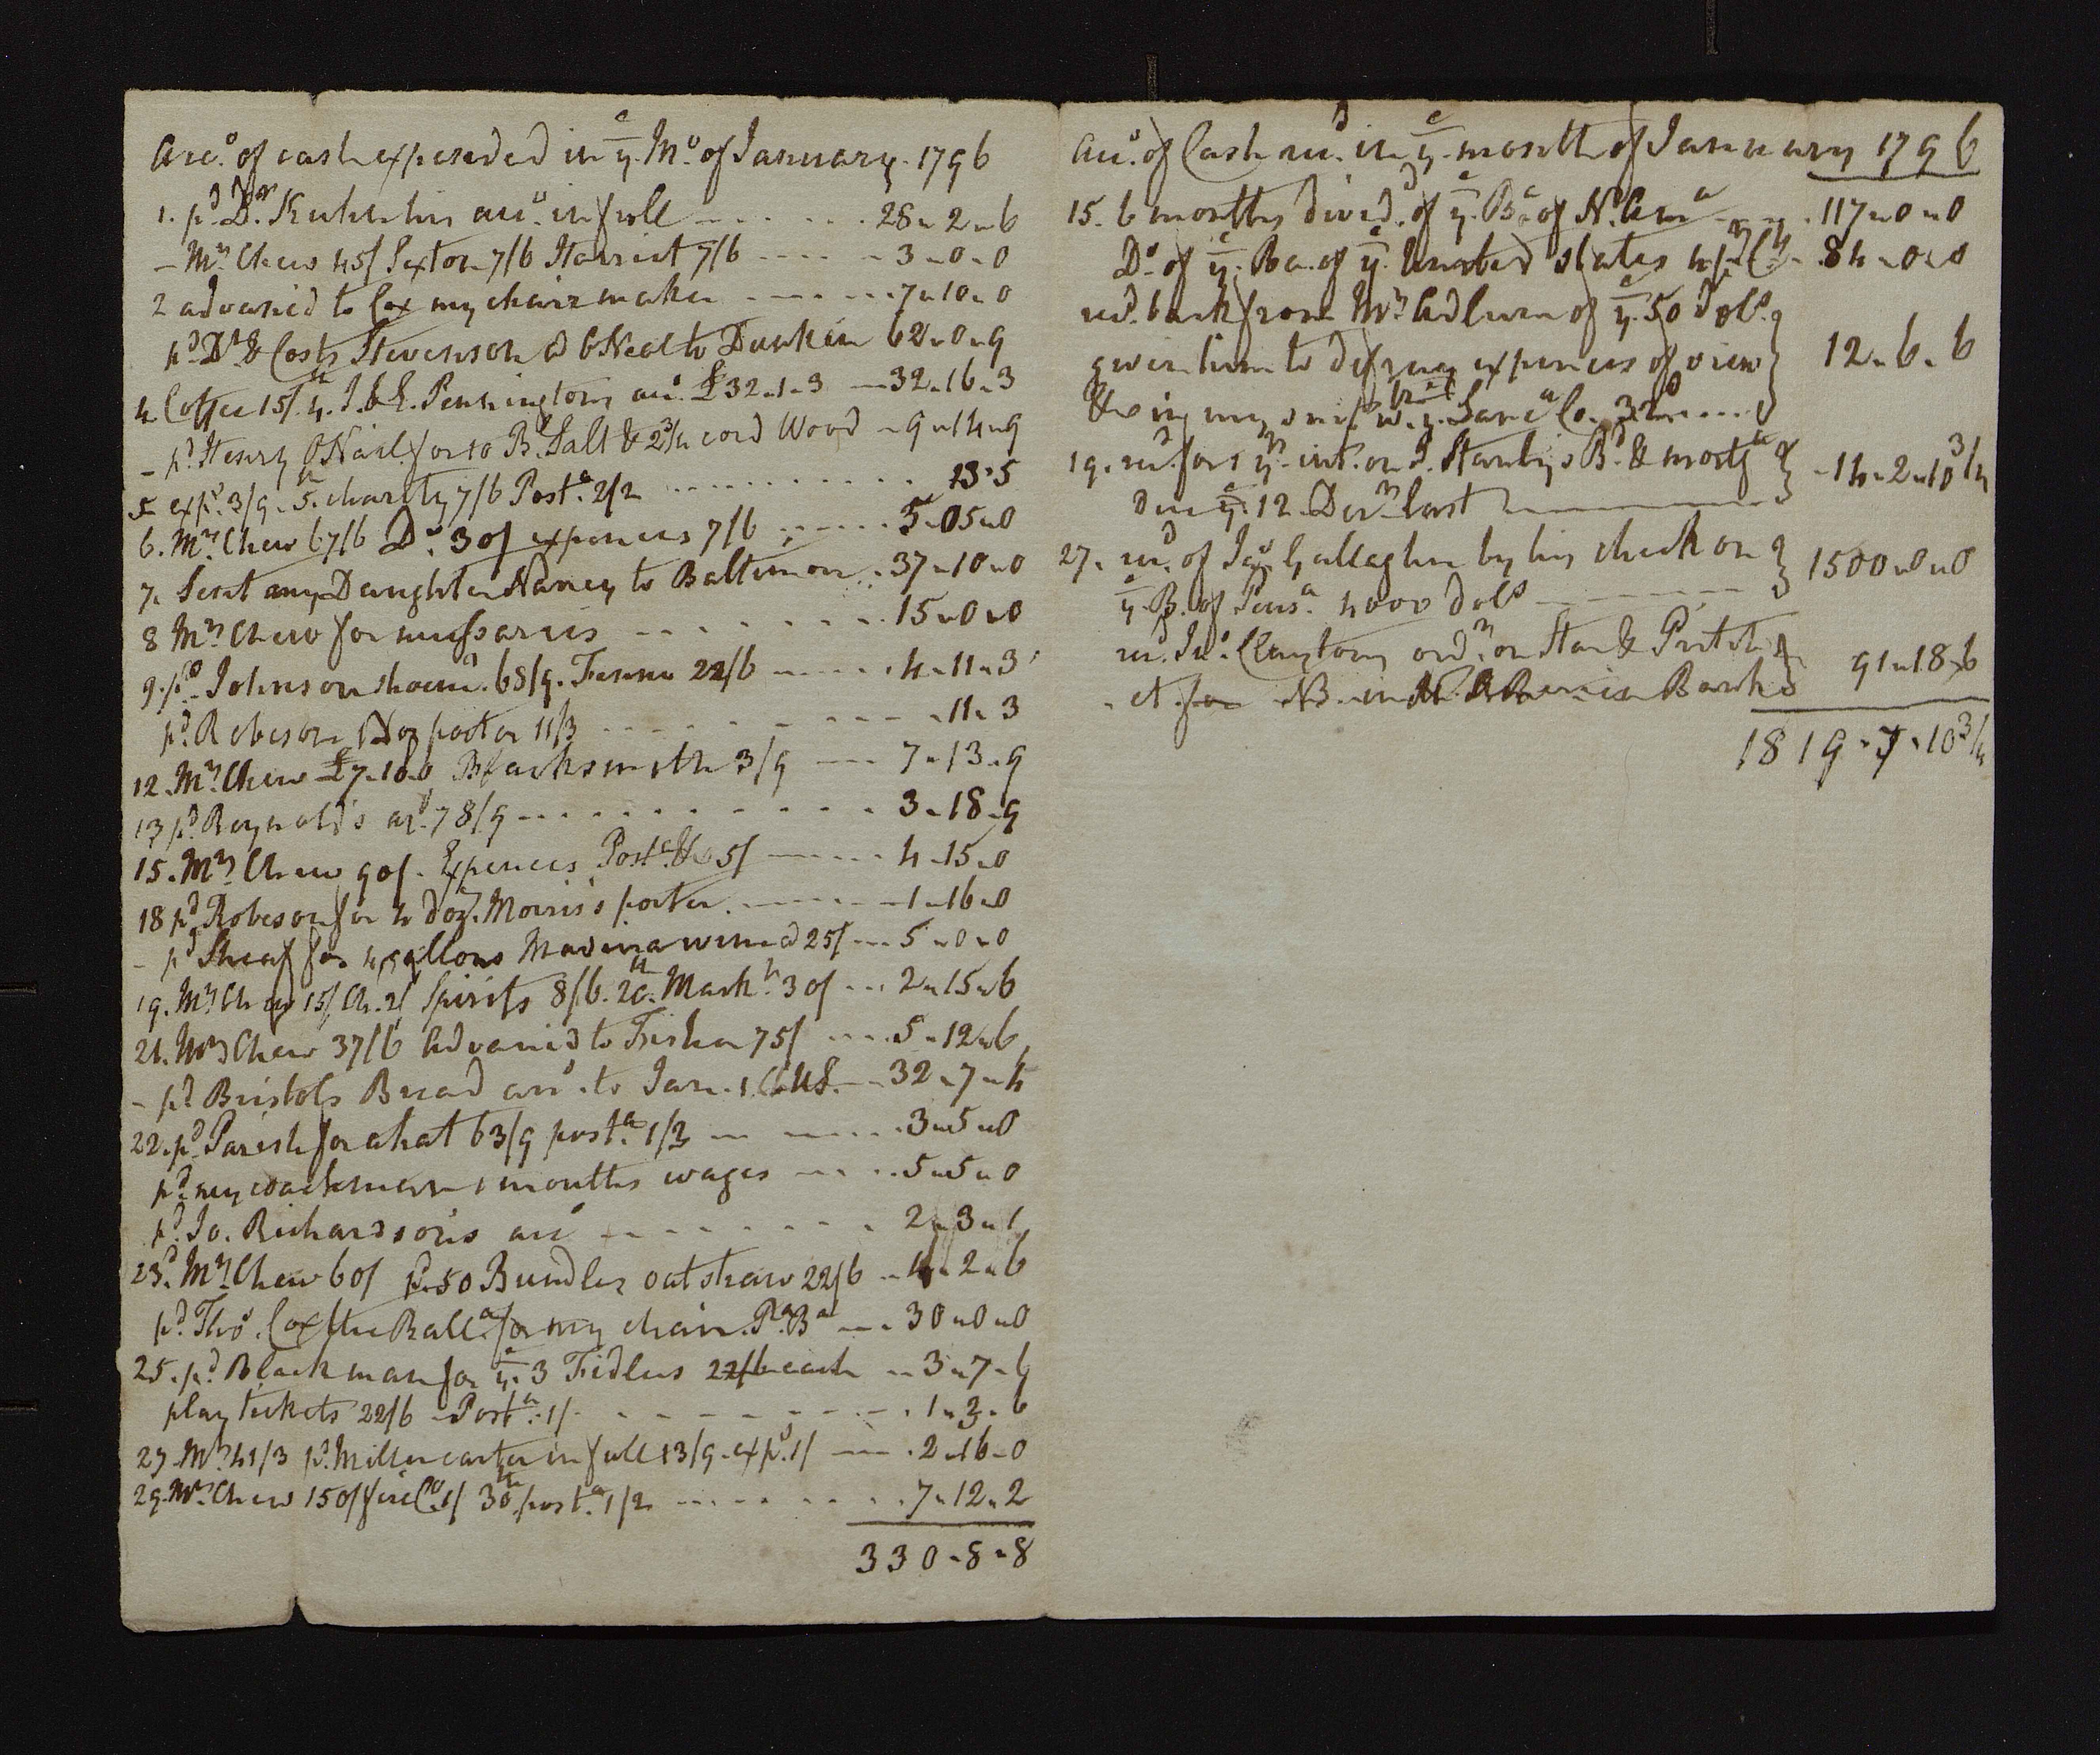 Acco. of cash expended in ye. Mo. of January. 1796
1. pd. Dr. Kuhn his acco. in full - - - - - 28 " 2 " 6
- Mrs. Chew 45/ Sexton 7/6 Harriet 7/6 - - - - 3 " 0 " 0
2 advanced to Cox my chairmaker - - - - - 7 " 10 " 0
pd. Dt. & Costs Stevenson ad ONeal to Dunkin 62 " 0 " 9
4. Coffee 15/. 4. I. & E. Penningtons acco. £32.1.3 - 32 " 16 " 3
- pd. Henry ONail for 10 B. Salt & 2 3/4 cord Wood - 9 " 14 " 9
5 exps. 3/9. 5. charity 7/6 Posta. 2/2 - - - - - 13 " 5
6. Mrs. Chew 67/6 Do. 30/ expences 7/6 - - - - 5 " 05 " 0
7. Sent my Daughter Nancy to Baltimore . . 37 " 10 " 0
8 Mrs. Chew for necessaries - - - - - - 15 " 0 " 0
9. pd. Johnson shoem. 68/9. Fenno 22/6 - - - - 4 " 11 " 3
pd. Robeson Doz porter 11/3 - - - - - - - 11 " 3
12. Mrs. Chew £7.10.0 Blacksmith 3/9 - - - 7 " 13 " 9
13 pd. Reynold's acco. 78/9 - - - - - - - 3 " 18 " 9
15. Mrs. Chew 90/. Expences Posta. &c 5/ - - - - 4 " 15 " 0
18 pd. Robeson for 4 doz. Morris's porter. - - - - 1 " 16 " 0
- pd. Sheaf for 4 gallons Madeira wine @ 25/ - - 5 " 0 " 0
19. Mrs Chew 15/ Ch. 2/ Spirits 8/6. 20. Markt. 30/ - - - 2 " 15 " 6
21. Mrs Chew 37/6 Advanced to Fisher 75/ - - - - 5 " 12 " 6
- pd. Bristols Bread acco. to Jan. 1. - - 32 " 7 " 4
22. pd. Parish for a hat 63/9 posta. 1/3 - - - - - 3 " 5 " 0
pd. my coachman 1 months wages - - - - 5 " 5 " 0
pd. Jo. Richardson's acco. - - - - - - 2 " 3 " 1
23d. Mrs. Chew 60/ pd. 50 Bundles oat straw 22/6 - 4 " 2 " 6
pd. Thos. Cox the Balla. for my chair. Pa. Ba - - 30 " 0 " 0
25. pd. Blackman for ye. 3 Fidlers 22/6 each - - 3 " 7 " 6
play tickets 22/6 - Posta. 1/. - - - - - - - 1 " 3 " 6
27. Mrs. 41/3 pd. Miller carter in full 13/9. exps. 1/ - - - 2 " 16 " 0
29. Mrs. Chew 150/ fire Co. 1/ 30th posta. 1/2 - - - - - 7 " 12 " 2
330 " 8 " 8
Acco. of Cash recd. in ye. month of January 1796
15. 6 months divid. of ye. Ba. of No. Ama - - - 117 " 0 " 0
Do. of ye. Ba. of ye. United states 4 pr Ct. - 84 " 0 " 0
recd. back from Mr. Adlum of ye. 50 dolls.
given him to defray expences of view } 12 " 6 " 6
19. recd. for 1 yrs. int. on J. Stanlys Bd. & mortga } 14 " 2 " 10 3/4
due ye. 12. Decr. last
27. recd. of Jas. Gallagher by his check on } 1500 " 0 " 0
ye. B. of Pensa. 4000 dolls
recd. Jno. Claytons ordr. on Star & Pritch } 91 " 18 " 6
1819 " 7 " 10 3/4